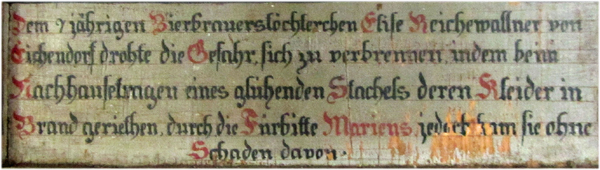 Dem 7 jährigen Bierbrauerstöchterchen Elise Reichewallner von
Eichendorf drohte die Gefahr, sich zu verbrennen, indem beim
Nachhausetragen eines glühenden Stachels deren Kleider in
Brand geriethen, durch die Fürbitte Mariens jedoch kam sie ohne
Schaden davon.